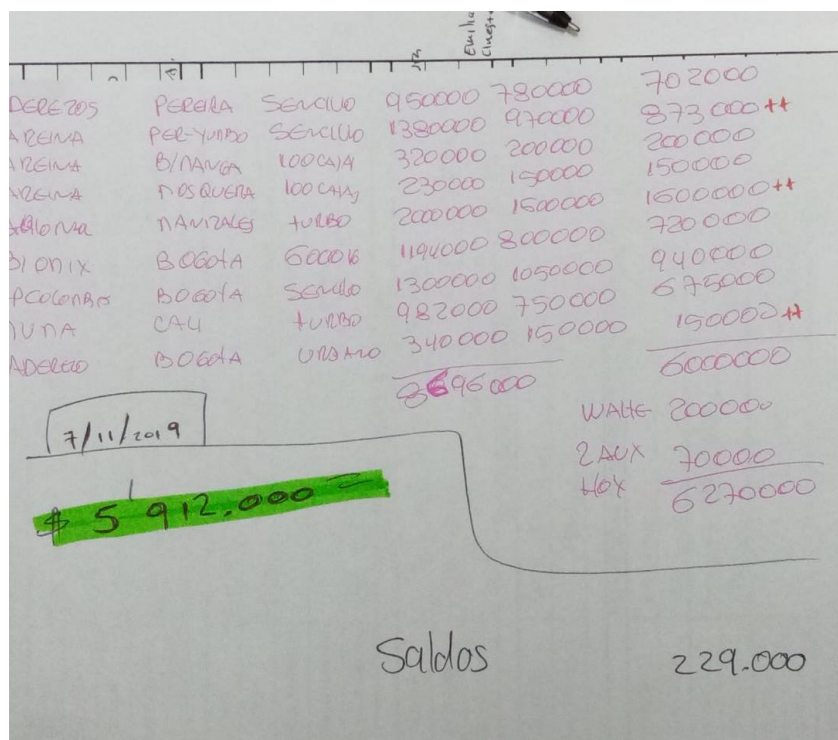 Emilia
DEREZOS PEREIRA SENCILLO 950000 780000 702000
AREINA PER-YUMBO SENCILLO 1380000 970000 873000 ++
AREINA B/MANGA 100 CAJA 320000 200000 200000
AREINA MOSQUERA 100 CAJAS 230000 150000 150000
MANIZALES TURBO 2000000 1600000 1600000 ++
BIONIX BOGOTA 6000 K 1194000 800000 720000
PCOLOMBO BOGOTA SENCILLO 1300000 1050000 940000
NUNA CALI TURBO 982000 750000 675000
ADEREZO BOGOTA URBANO 340000 150000 150000 ++
8696000 6000000
WALTE 200000
2 AUX 70000
HOY 6270000
7/11/2019
$ 5'912.000 =
Saldos 229.000